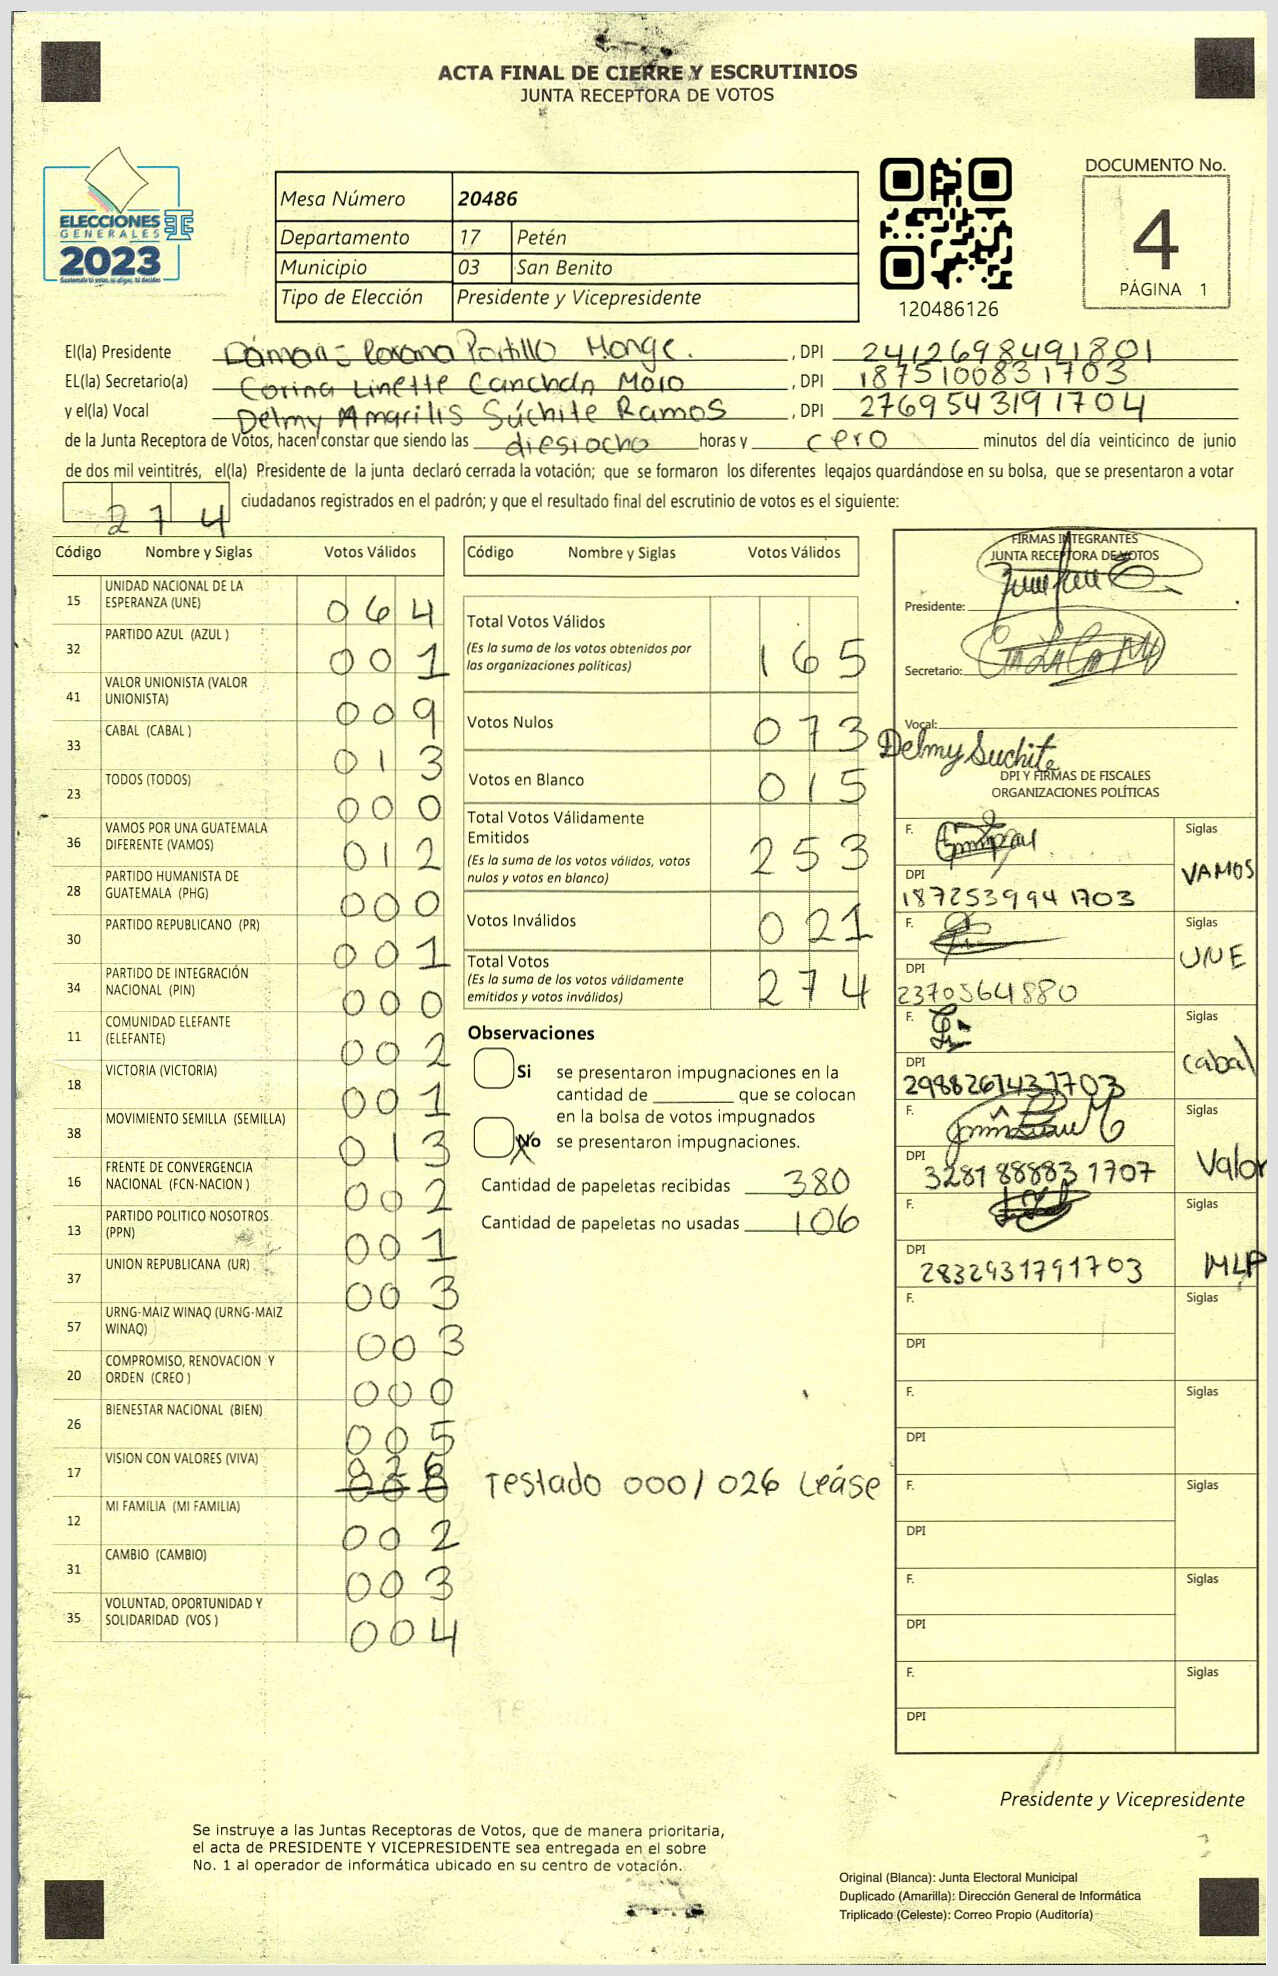 ACTA FINAL DE CIERRE Y ESCRUTINIOS
JUNTA RECEPTORA DE VOTOS
ELECCIONES
GENERALES
2023
Mesa Número 20486
Departamento 17 Petén
Municipio 03 San Benito
Tipo de Elección Presidente y Vicepresidente
120486126
DOCUMENTO No.
4
PÁGINA 1
El(la) Presidente Dámaris Roxana Portillo Monge. , DPI 2412698491801
EL(la) Secretario(a) Corina Linette Canchán Moro , DPI 1875100831703
y el(la) Vocal Delmy Amarilis Súchite Ramos , DPI 2769543191704
de la Junta Receptora de Votos, hacen constar que siendo las diesiocho horas y cero minutos del día veinticinco de junio
de dos mil veintitrés, el(la) Presidente de la junta declaró cerrada la votación; que se formaron los diferentes legajos quardándose en su bolsa, que se presentaron a votar
274 ciudadanos registrados en el padrón; y que el resultado final del escrutinio de votos es el siguiente:
Código Nombre y Siglas Votos Válidos
15 UNIDAD NACIONAL DE LA ESPERANZA (UNE) 064
32 PARTIDO AZUL (AZUL ) 001
41 VALOR UNIONISTA (VALOR UNIONISTA) 009
33 CABAL (CABAL ) 013
23 TODOS (TODOS) 000
36 VAMOS POR UNA GUATEMALA DIFERENTE (VAMOS) 012
28 PARTIDO HUMANISTA DE GUATEMALA (PHG) 000
30 PARTIDO REPUBLICANO (PR) 001
34 PARTIDO DE INTEGRACIÓN NACIONAL (PIN) 000
11 COMUNIDAD ELEFANTE (ELEFANTE) 002
18 VICTORIA (VICTORIA) 001
38 MOVIMIENTO SEMILLA (SEMILLA) 013
16 FRENTE DE CONVERGENCIA NACIONAL (FCN-NACION ) 002
13 PARTIDO POLITICO NOSOTROS (PPN) 001
37 UNION REPUBLICANA (UR) 003
57 URNG-MAIZ WINAQ (URNG-MAIZ WINAQ) 003
20 COMPROMISO, RENOVACION Y ORDEN (CREO ) 000
26 BIENESTAR NACIONAL (BIEN) 005
17 VISION CON VALORES (VIVA) 026 000 Testado 000/026 Léase
12 MI FAMILIA (MI FAMILIA) 002
31 CAMBIO (CAMBIO) 003
35 VOLUNTAD, OPORTUNIDAD Y SOLIDARIDAD (VOS ) 004
Código Nombre y Siglas Votos Válidos
Total Votos Válidos 165
(Es la suma de los votos obtenidos por
las organizaciones políticas)
Votos Nulos 073
Votos en Blanco 015
Total Votos Válidamente
Emitidos 253
(Es la suma de los votos válidos, votos
nulos y votos en blanco)
Votos Inválidos 021
Total Votos 274
(Es la suma de los votos válidamente
emitidos y votos inválidos)
Observaciones
Si se presentaron impugnaciones en la
cantidad de ________ que se colocan
en la bolsa de votos impugnados
No se presentaron impugnaciones.
Cantidad de papeletas recibidas 380
Cantidad de papeletas no usadas 106
FIRMAS INTEGRANTES
JUNTA RECEPTORA DE VOTOS
Presidente:
Secretario:
Vocal:
Delmy Suchite
DPI Y FIRMAS DE FISCALES
ORGANIZACIONES POLÍTICAS
F. Siglas
VAMOS
DPI
1872539941703
F. Siglas
UNE
DPI
2370564880
F. Siglas
Cabal
DPI
2988261431703
F. Siglas
Valor
DPI
3281888831707
F. Siglas
MLP
DPI
2832931791703
F. Siglas
DPI
F. Siglas
DPI
F. Siglas
DPI
F. Siglas
DPI
F. Siglas
DPI
Presidente y Vicepresidente
Se instruye a las Juntas Receptoras de Votos, que de manera prioritaria,
el acta de PRESIDENTE Y VICEPRESIDENTE sea entregada en el sobre
No. 1 al operador de informática ubicado en su centro de votación.
Original (Blanca): Junta Electoral Municipal
Duplicado (Amarilla): Dirección General de Informática
Triplicado (Celeste): Correo Propio (Auditoría)